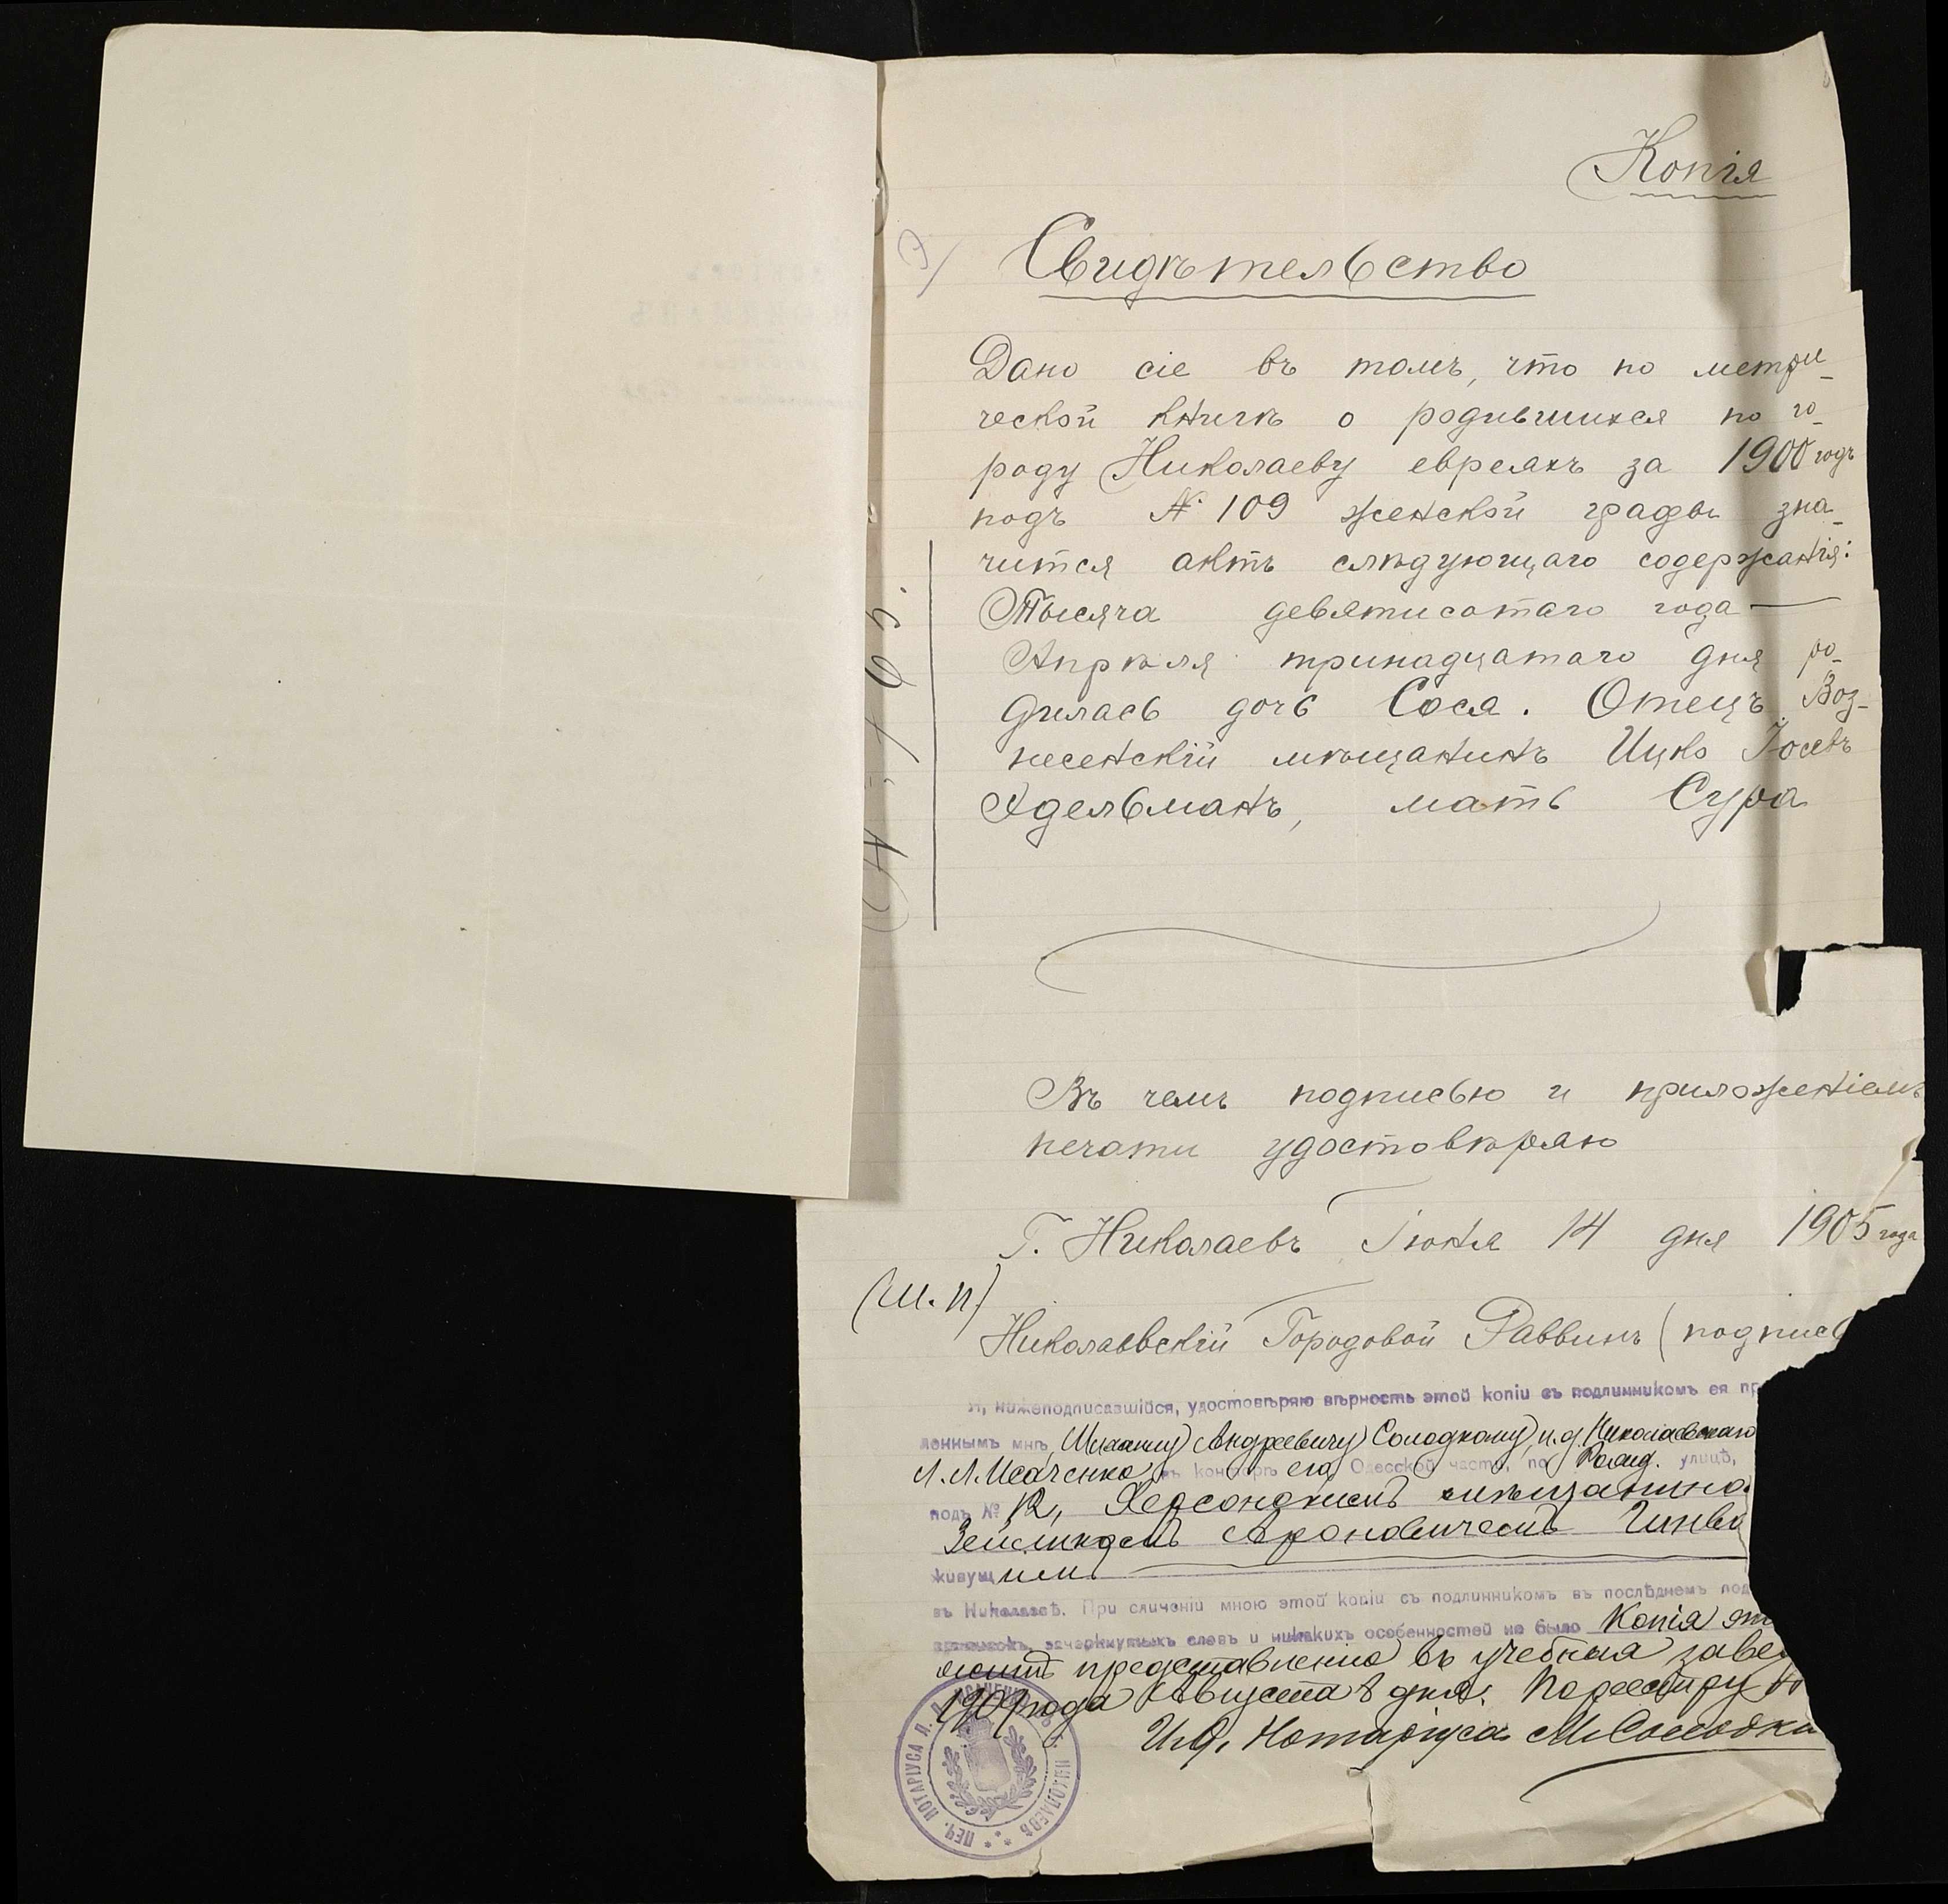 Копія
Свидѣтельство
Дано сіе въ томъ, что по метри-
ческой книгѣ о родившихся по го-
роду Николаеву евреяхъ за 1900 годъ
подъ № 109 женской графы зна-
чится актъ слѣдующаго содержанія:
Тысяча девятисотаго года —
Апрѣля тринадцатаго дня ро-
дилась дочь Сося. Отецъ Воз-
несенскій мѣщанинъ Ицко Іосевъ
Адельманъ, мать Сура
Въ чемъ подписью и приложеніемъ
печати удостовѣряю
Г. Николаевъ Іюня 14 дня 1905 года
(М. П.)
Николаевскій Городовой Раввинъ (подпись
Я, нижеподписавшійся, удостовѣряю вѣрность этой копіи съ подлинникомъ ея пр
леннымъ мнѣ, Михаилу Андреевичу Солодкому, и. д. Николаевскаго
Л. Л. Исаченко, въ конторѣ его, Одесской части, по Рожд. улицѣ,
подъ № 12, Херсонскимъ мѣщанино
Зейликомъ Ароновичемъ
живущимъ
въ Николаевѣ. При сличеніи мною этой копіи съ подлинникомъ въ послѣднемъ под
приписокъ, зачеркнутыхъ словъ и никакихъ особенностей не было Копія эт
представленію въ учебныя завед
1909 года Августа 8 дня. По реестру №
И. д. Нотаріуса М. Солодкі
ПЕЧ. НОТАРІУСА Л. Л. ИСАЧЕНКО ВЪ Г. НИКОЛАЕВѢ